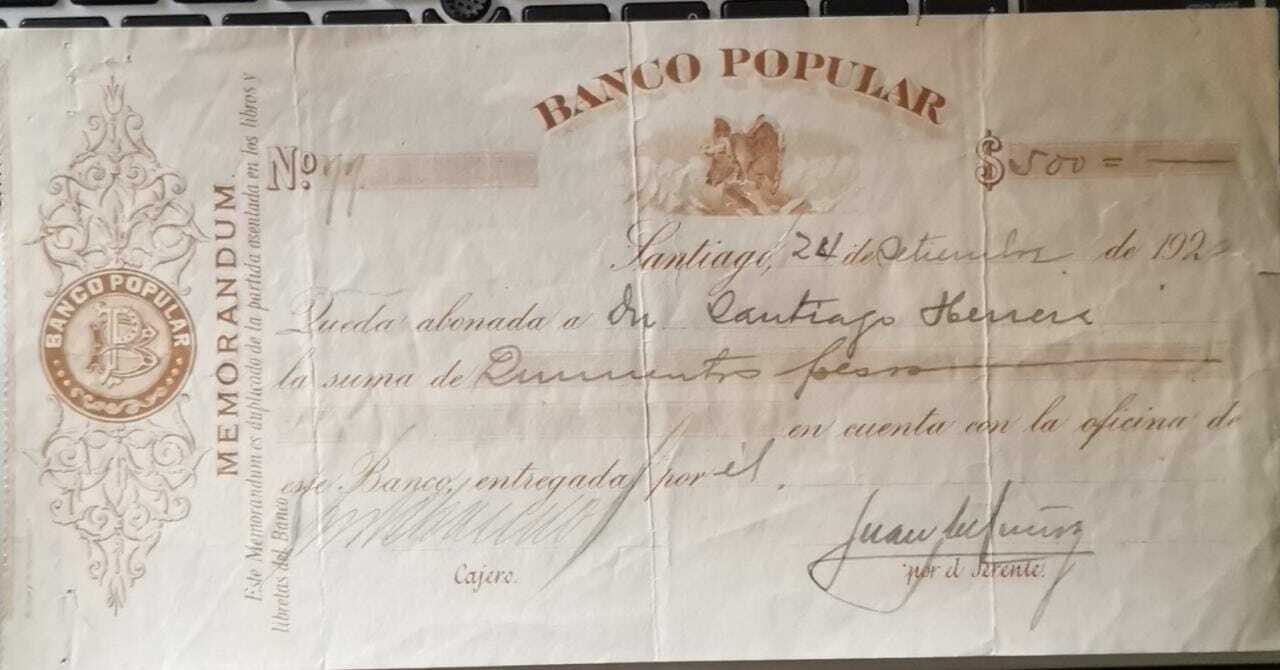 BANCO POPULAR
Nº 77
$ 500 =
Santiago, 24 de Setiembre de 192
Queda abonada a Dn Santiago Herrera
la suma de Quinientos pesos
en cuenta con la oficina de
este Banco, entregada por él
Cajero.
por el Gerente.
MEMORANDUM.
Este Memorandum es duplicado de la partida asentada en los libros y
libretas del Banco
BANCO POPULAR